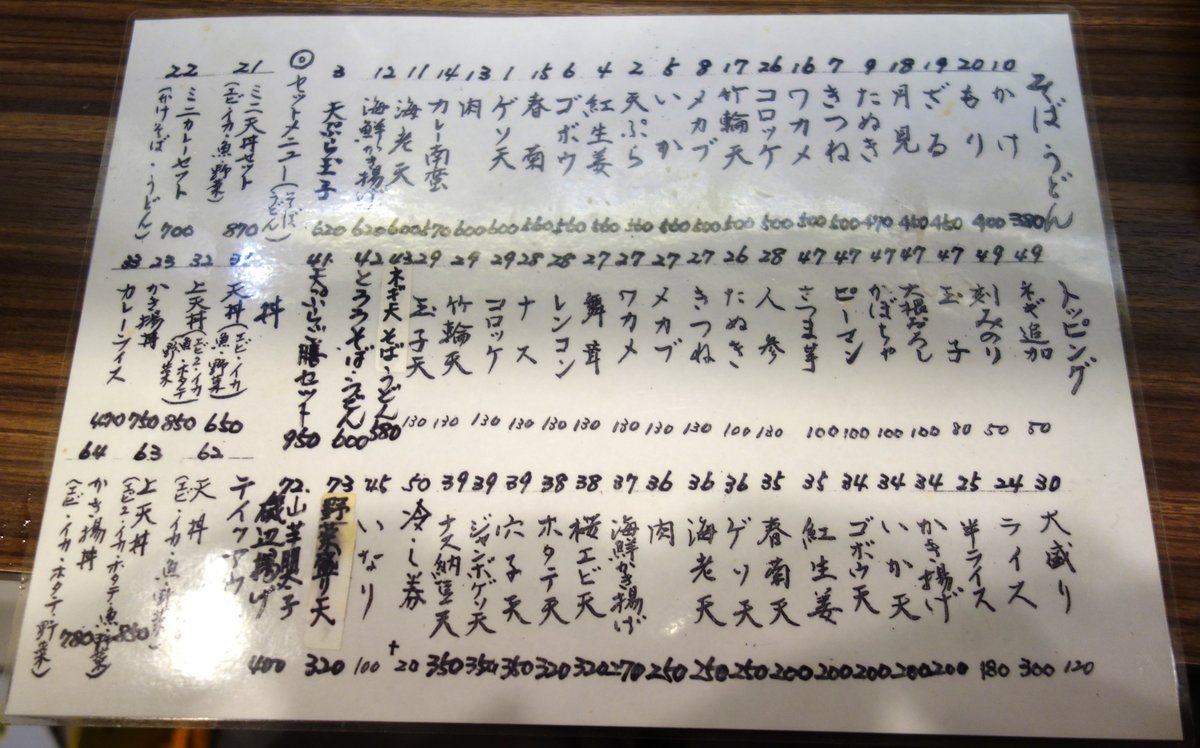 そば・うどん
10 かけ 380
20 もり 400
19 ざる 460
18 月見 460
9 たぬき 470
7 きつね 500
16 ワカメ 500
26 コロッケ 500
17 竹輪天 500
8 メカブ 500
5 いか 560
2 天ぷら 560
4 紅生姜 560
6 ゴボウ 560
15 春菊 560
1 ゲソ天 600
13 肉 600
14 カレー南蛮 570
11 海老天 600
12 海鮮かき揚げ 620
3 天ぷら玉子 620
◎セットメニュー(そば うどん)
21 ミニ天丼セット 870
(エビ・イカ・魚 野菜)
22 ミニカレーセット 700
(かけそば・うどん)
トッピング
49 ネギ追加 50
49 刻みのり 50
47 玉子 80
47 大根おろし 100
47 かぼちゃ 100
47 ピーマン 100
47 さつま芋 100
28 人参 130
26 たぬき 100
27 きつね 130
27 メカブ 130
27 ワカメ 130
27 舞茸 130
28 レンコン 130
28 ナス 130
29 コロッケ 130
29 竹輪天 130
29 玉子天 130
43 ネギ天そば・うどん 580
42 とろろそば・うどん 600
41 天ぷらご膳セット 950
丼
31 天丼(エビ・イカ 魚・野菜) 650
32 上天丼(エビ2・イカ 魚・ホタテ 野菜) 850
23 かき揚丼 750
33 カレーライス 470
30 大盛り 120
24 ライス 300
25 半ライス 180
34 かき揚げ 200
34 いか天 200
34 ゴボウ天 200
35 紅生姜 200
35 春菊天 200
36 ゲソ天 250
36 海老天 250
36 肉 250
37 海鮮かき揚げ 270
38 桜エビ天 320
38 ホタテ天 320
39 穴子天 350
39 ジャンボゲソ天 350
39 ナス納豆天 350
50 冷し券 +20
45 いなり 100
73 野菜寄り天 320
72 山芋明太子
磯辺揚げ 400
テイクアウト
62 天丼
(エビ・イカ・魚 野菜)
63 上天丼 850
(エビ2・イカ・ホタテ・魚 野菜)
64 かき揚丼 780
(エビ・イカ・ホタテ 野菜)